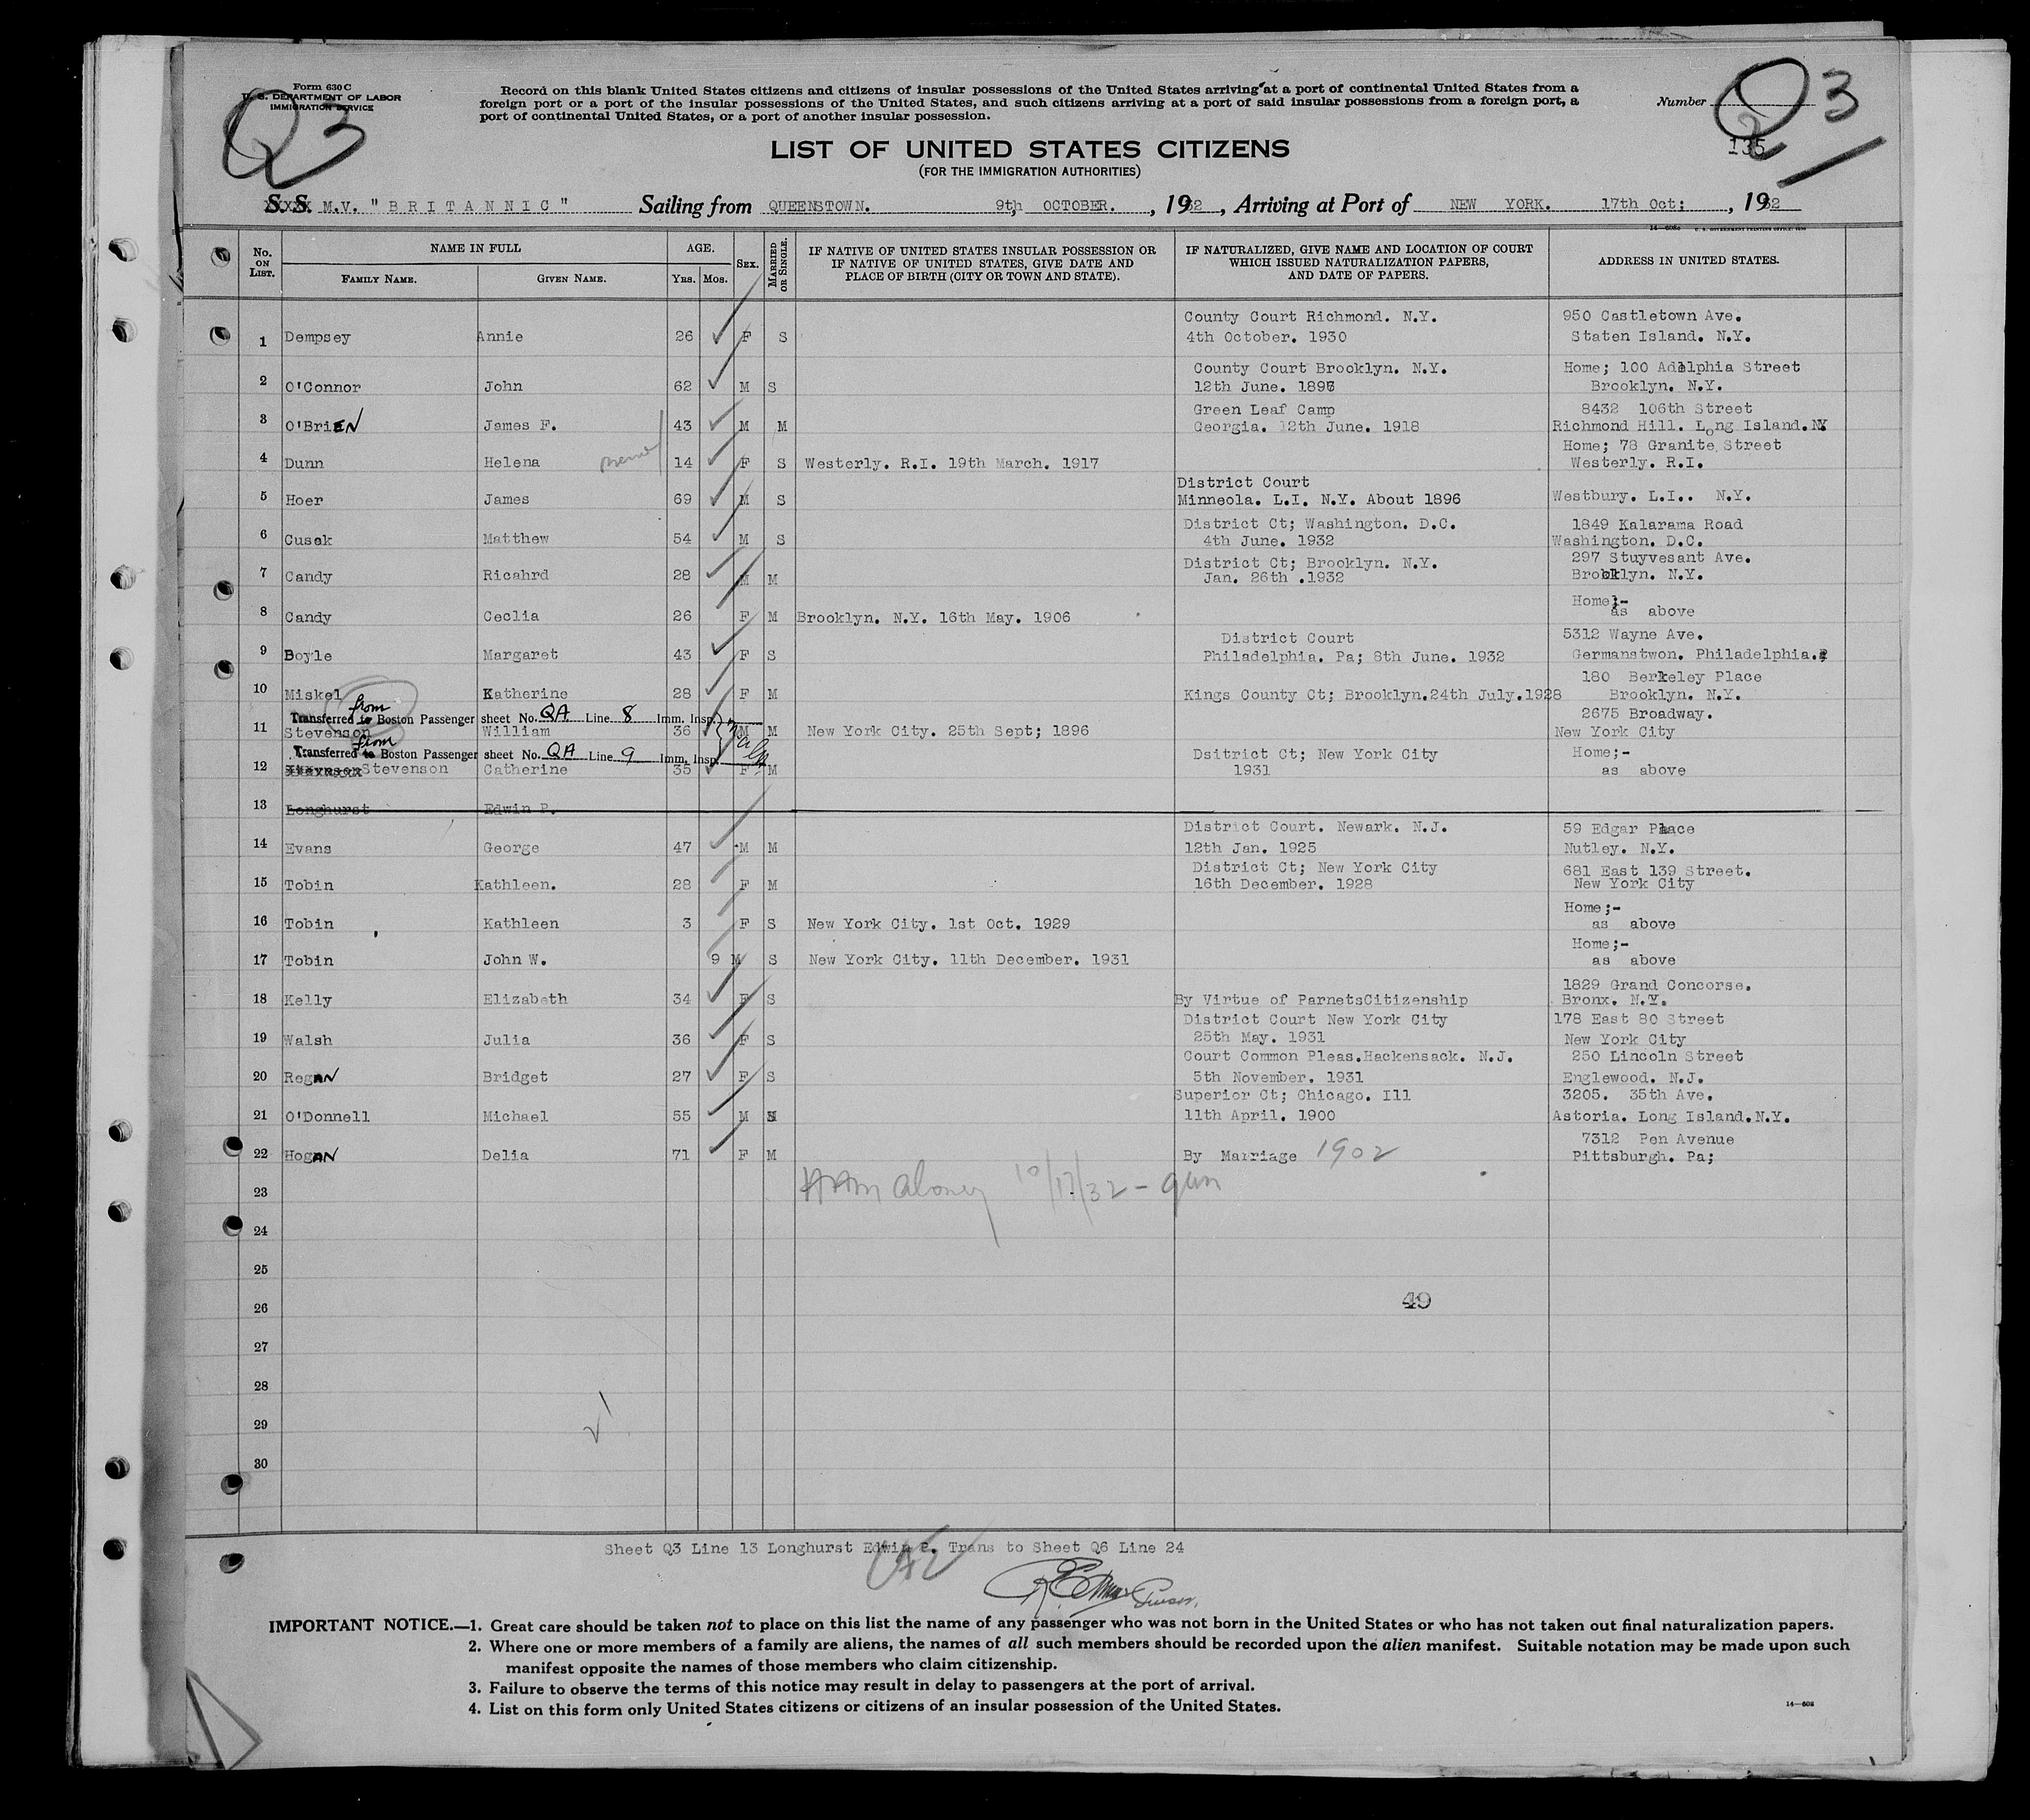 Form 630 C
U. S. DEPARTMENT OF LABOR
IMMIGRATION SERVICE
Q3
Record on this blank United States citizens and citizens of insular possessions of the United States arriving at a port of continental United States from a
foreign port or a port of the insular possessions of the United States, and such citizens arriving at a port of said insular possessions from a foreign port, a
port of continental United States, or a port of another insular possession.
Number
Q3
2
135
LIST OF UNITED STATES CITIZENS
(FOR THE IMMIGRATION AUTHORITIES)
S. S. M.V. "BRITANNIC" Sailing from QUEENSTOWN. 9th OCTOBER. , 1932 , Arriving at Port of NEW YORK. 17th Oct; , 1932
No. ON LIST. NAME IN FULL FAMILY NAME. GIVEN NAME. AGE. YRS. MOS. SEX. MARRIED OR SINGLE.
IF NATIVE OF UNITED STATES INSULAR POSSESSION OR
IF NATIVE OF UNITED STATES, GIVE DATE AND
PLACE OF BIRTH (CITY OR TOWN AND STATE).
IF NATURALIZED, GIVE NAME AND LOCATION OF COURT
WHICH ISSUED NATURALIZATION PAPERS,
AND DATE OF PAPERS.
ADDRESS IN UNITED STATES.
County Court Richmond. N.Y. 950 Castletown Ave.
1 Dempsey Annie 26 F S 4th October. 1930 Staten Island. N.Y.
County Court Brooklyn. N.Y. Home; 100 Adelphia Street
2 O'Connor John 62 M S 12th June. Brooklyn. N.Y.
Green Leaf Camp 8432 106th Street
3 O'BriEN James F. 43 M M Georgia. 12th June. 1918 Richmond Hill. Long Island.NY
Home; 78 Granite Street
4 Dunn Helena 14 F S Westerly. R.I. 19th March. 1917 Westerly. R.I.
District Court
5 Hoer James 69 M S Minneola. L.I. N.Y. About 1896 Westbury. L.I.. N.Y.
District Ct; Washington. D.C. 1849 Kalarama Road
6 Cusak Matthew 54 M S 4th June. 1932 Washington. D.C.
District Ct; Brooklyn. N.Y. 297 Stuyvesant Ave.
7 Candy Ricahrd 28 M M Jan. 26th .1932 Brooklyn. N.Y.
Home;-
8 Candy Ceclia 26 F M Brooklyn. N.Y. 16th May. 1906 as above
District Court 5312 Wayne Ave.
9 Boyle Margaret 43 F S Philadelphia. Pa; 8th June. 1932 Germanstwon. Philadelphia.P
180 Berkeley Place
10 Miskel Katherine 28 F M Kings County Ct; Brooklyn.24th July.1928 Brooklyn. N.Y.
Transferred to from Boston Passenger sheet No. QA Line 8 Imm. Insp. 2675 Broadway.
11 Stevenson William 36 M M New York City. 25th Sept; 1896 New York City
Transferred to from Boston Passenger sheet No. QA Line 9 Imm. Insp. Dsitrict Ct; New York City Home;-
12 Stevenson Catherine 35 F M 1931 as above
13 Longhurst Edwin P.
District Court. Newark. N.J. 59 Edgar Place
14 Evans George 47 M M 12th Jan. 1925 Nutley. N.Y.
District Ct; New York City 681 East 139 Street.
15 Tobin Kathleen. 28 F M 16th December. 1928 New York City
Home;-
16 Tobin Kathleen 3 F S New York City. 1st Oct. 1929 as above
Home;-
17 Tobin John W. 9 M S New York City. 11th December. 1931 as above
1829 Grand Concorse.
18 Kelly Elizabeth 34 F S By Virtue of ParnetsCitizenship Bronx. N.Y.
District Court New York City 178 East 80 Street
19 Walsh Julia 36 F S 25th May. 1931 New York City
Court Common Pleas.Hackensack. N.J. 250 Lincoln Street
20 RegAN Bridget 27 F S 5th November. 1931 Englewood. N.J.
Superior Ct; Chicago. Ill 3205. 35th Ave.
21 O'Donnell Michael 55 M 11th April. 1900 Astoria. Long Island.N.Y.
7312 Pen Avenue
22 HogAN Delia 71 F M By Marriage 1902 Pittsburgh. Pa;
23 10/17/32
24
25
26 49
27
28
29
30
Sheet Q3 Line 13 Longhurst Edwin P. Trans to Sheet Q6 Line 24
IMPORTANT NOTICE.—1. Great care should be taken not to place on this list the name of any passenger who was not born in the United States or who has not taken out final naturalization papers.
2. Where one or more members of a family are aliens, the names of all such members should be recorded upon the alien manifest. Suitable notation may be made upon such
manifest opposite the names of those members who claim citizenship.
3. Failure to observe the terms of this notice may result in delay to passengers at the port of arrival.
4. List on this form only United States citizens or citizens of an insular possession of the United States.
14—608